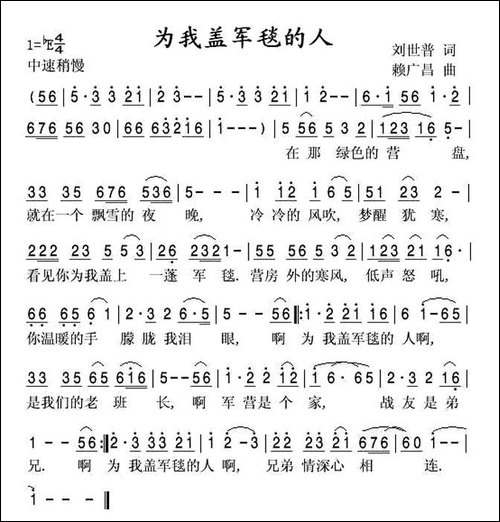 为我盖军毯的人
1=♭E 4/4
中速稍慢
刘世普 词
赖广昌 曲
(56|5·3 33 21|2 3--|5·3 33 21|1·2--|6·1 56|
676 56 30|66 63216|1---)|5 56 5 3 2|123 16 5-|
在那 绿色的 营 盘,
33 35 676 536|5---|1 12 1 6 5|51 23 2-|
就在一个 飘雪的 夜 晚, 冷 冷的 风吹, 梦醒 犹 寒,
222 23 5 5 3|26 2321-|55 35 5 5 2|123 216 6-|
看见你为我盖上 一蓬 军 毯. 营房 外的寒风, 低声 怒 吼,
66 65 1 6|2·3 2 6·5|5--56|:2·3 33 21|1 6--|
你温暖的手 朦胧 我泪 眼, 啊 为 我盖军毯的 人啊,
33 33 65 616|5--56|1·2 22 12|1 6·65|2·2 3 16|
是我们的老 班 长, 啊 军 营是个 家, 战 友 是 弟
1--56:|2·3 33 21|1 2·3|321 21 676|60 1--|
兄. 啊 为 我盖军毯的人 啊, 兄弟 情深心 相 连.
1--‖